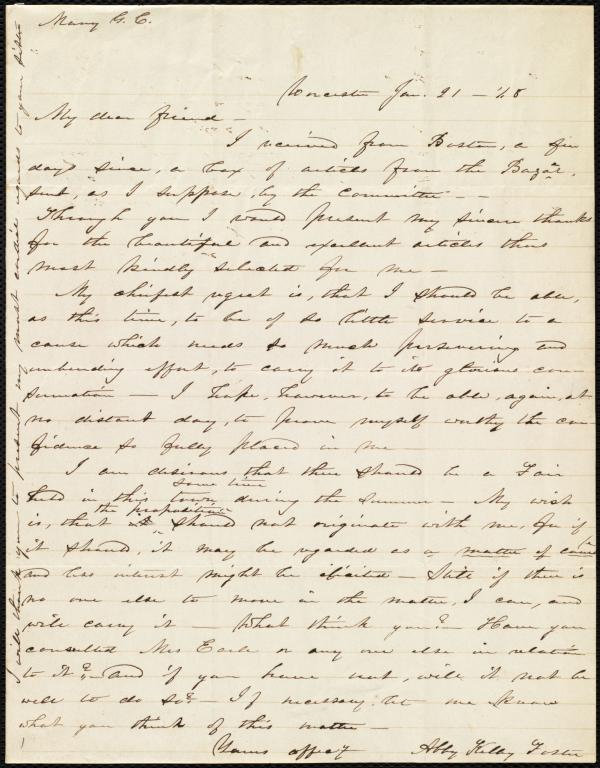 Mary G. C.
Worcester Jan. 21 - '48
My dear friend -
I received from Boston, a few
days since, a box of articles from the Bazar,
sent, as I suppose, by the Committee - -
Through you I would present my sincere thanks
for the beautiful and excellent articles thus
most kindly selected for me -
My chiefest regret is, that I should be able,
as this time, to be of so little service to a
cause which needs so much persevering and
unbending effort, to carry it to its glorious con-
summation - I hope, however, to be able, again, at
no distant day, to prove myself worthy the con-
fidence so fully placed in me -
I am desirous that there should be a Fair
some time
held in this town, during the summer - My wish
the proposition
is, that it should not originate with me, for if
it should, it may be regarded as a matter of course
and less interest might be elicited - Still if there is
no one else to move in the matter, I can, and
will carry it - What think you? - Have you
consulted Mrs Earle or any one else in relation
to it? - and if you have not, will it not be
well to do so? - If necessary let me know
what you think of this matter -
Yours affecy Abby Kelley Foster
I will thank you to present my most cordial regards to your sister